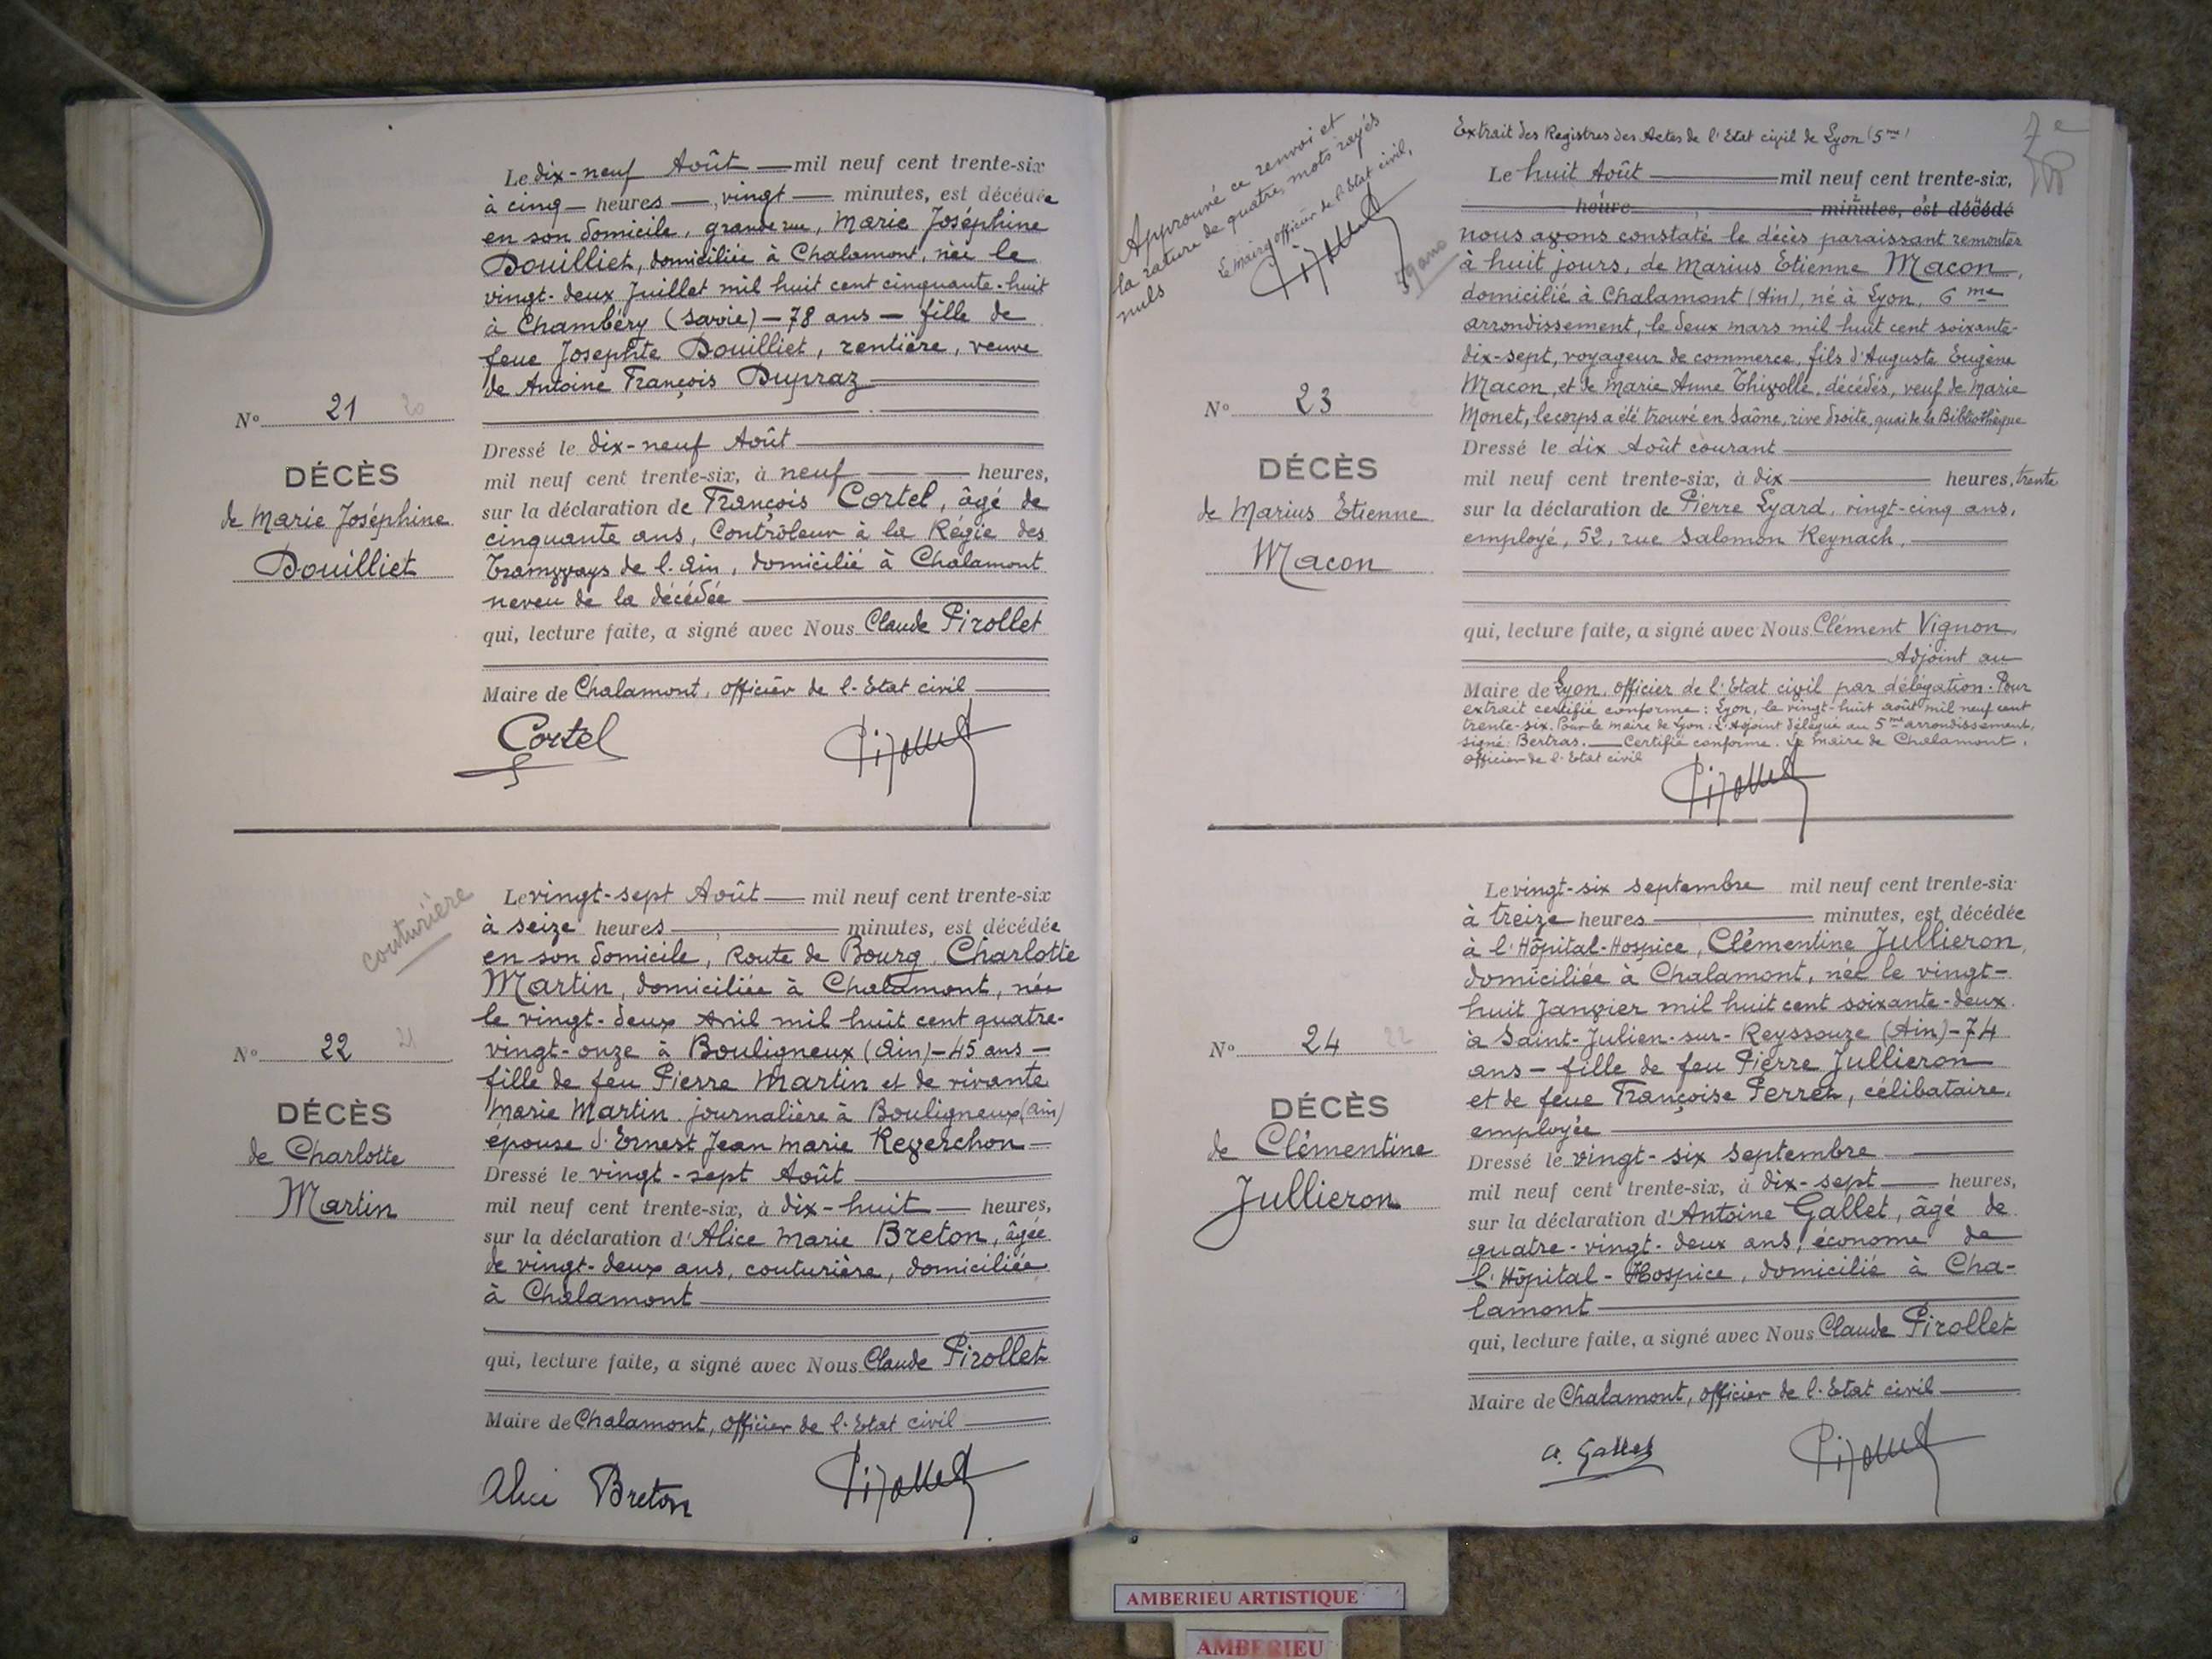 Le dix-neuf Août mil neuf cent trente-six
à cinq heures, vingt minutes, est décédée
en son domicile, grande rue, Marie Joséphine
Douilliet, domiciliée à Chalamont, née le
vingt-deux Juillet mil huit cent cinquante-huit
à Chambéry (Savoie) - 78 ans - fille de
feue Josephte Douilliet, rentière, veuve
de Antoine François Dupraz
N° 21 20
Dressé le dix-neuf Août
DÉCÈS
mil neuf cent trente-six, à neuf heures,
de Marie Joséphine
sur la déclaration de François Cortel, âgé de
cinquante ans, Contrôleur à la Régie des
Douilliet
Tramways de l'Ain, domicilié à Chalamont
neveu de la décédée
qui, lecture faite, a signé avec Nous Claude Pirollet
Maire de Chalamont, officier de l'Etat civil
Cortel Pirollet
couturière
Le vingt-sept Août mil neuf cent trente-six
à seize heures, minutes, est décédée
en son domicile, Route de Bourg, Charlotte
Martin, domiciliée à Chalamont, née
le vingt-deux Avril mil huit cent quatre-
vingt-onze à Bouligneux (Ain) - 45 ans -
N° 22 21
fille de feu Pierre Martin et de vivante
Marie Martin journalière à Bouligneux (Ain)
DÉCÈS
épouse d'Ernest Jean Marie Regerchon
de Charlotte
Dressé le vingt-sept Août
Martin
mil neuf cent trente-six, à dix-huit heures,
sur la déclaration d'Alice Marie Breton, âgée
de vingt-deux ans, couturière, domiciliée
à Chalamont
qui, lecture faite, a signé avec Nous Claude Pirollet
Maire de Chalamont, officier de l'Etat civil
Alice Breton Pirollet
Approuvé ce renvoi et
la rature de quatre mots rayés
nuls
Le maire officier de l'Etat civil,
Pirollet
59 ans
Extrait des Registres des Actes de l'Etat civil de Lyon (5me)
7e
Le huit Août mil neuf cent trente-six,
heure, minutes, est décédé
nous avons constaté le décès paraissant remonter
à huit jours, de Marius Etienne Macon,
domicilié à Chalamont (Ain), né à Lyon, 6me
arrondissement, le deux mars mil huit cent soixante-
dix-sept, voyageur de commerce, fils d'Auguste Eugène
Macon, et de Marie Anne Thivolle, décédés, veuf de Marie
N° 23
Monet, le corps a été trouvé en Saône, rive droite, quai de la Bibliothèque
Dressé le dix Août courant
DÉCÈS
mil neuf cent trente-six, à dix heures, trente
de Marius Etienne
sur la déclaration de Pierre Lyard, vingt-cinq ans,
employé, 52, rue Salomon Reynach,
Macon
qui, lecture faite, a signé avec Nous Clément Vignon,
Adjoint au
Maire de Lyon, officier de l'Etat civil par délégation. Pour
extrait certifié conforme: Lyon, le vingt-huit août mil neuf cent
trente-six. Pour le maire de Lyon. L'Adjoint délégué au 5me arrondissement,
signé: Bertras. Certifié conforme. Le maire de Chalamont.
officier de l'Etat civil
Pirollet
Le vingt-six Septembre mil neuf cent trente-six
à treize heures minutes, est décédée
à l'Hôpital-Hospice, Clémentine Jullieron,
domiciliée à Chalamont, née le vingt-
huit Janvier mil huit cent soixante-deux
à Saint-Julien-sur-Reyssouze (Ain) - 74
N° 24 22
ans - fille de feu Pierre Jullieron
et de feue Françoise Perret, célibataire,
DÉCÈS
employée
de Clémentine
Dressé le vingt-six Septembre
Jullieron
mil neuf cent trente-six, à dix-sept heures,
sur la déclaration d'Antoine Gallet, âgé de
quatre-vingt-deux ans, économe de
l'Hôpital-Hospice, domicilié à Cha-
lamont
qui, lecture faite, a signé avec Nous Claude Pirollet
Maire de Chalamont, officier de l'Etat civil
A. Gallet Pirollet
AMBERIEU ARTISTIQUE
AMBERIEU